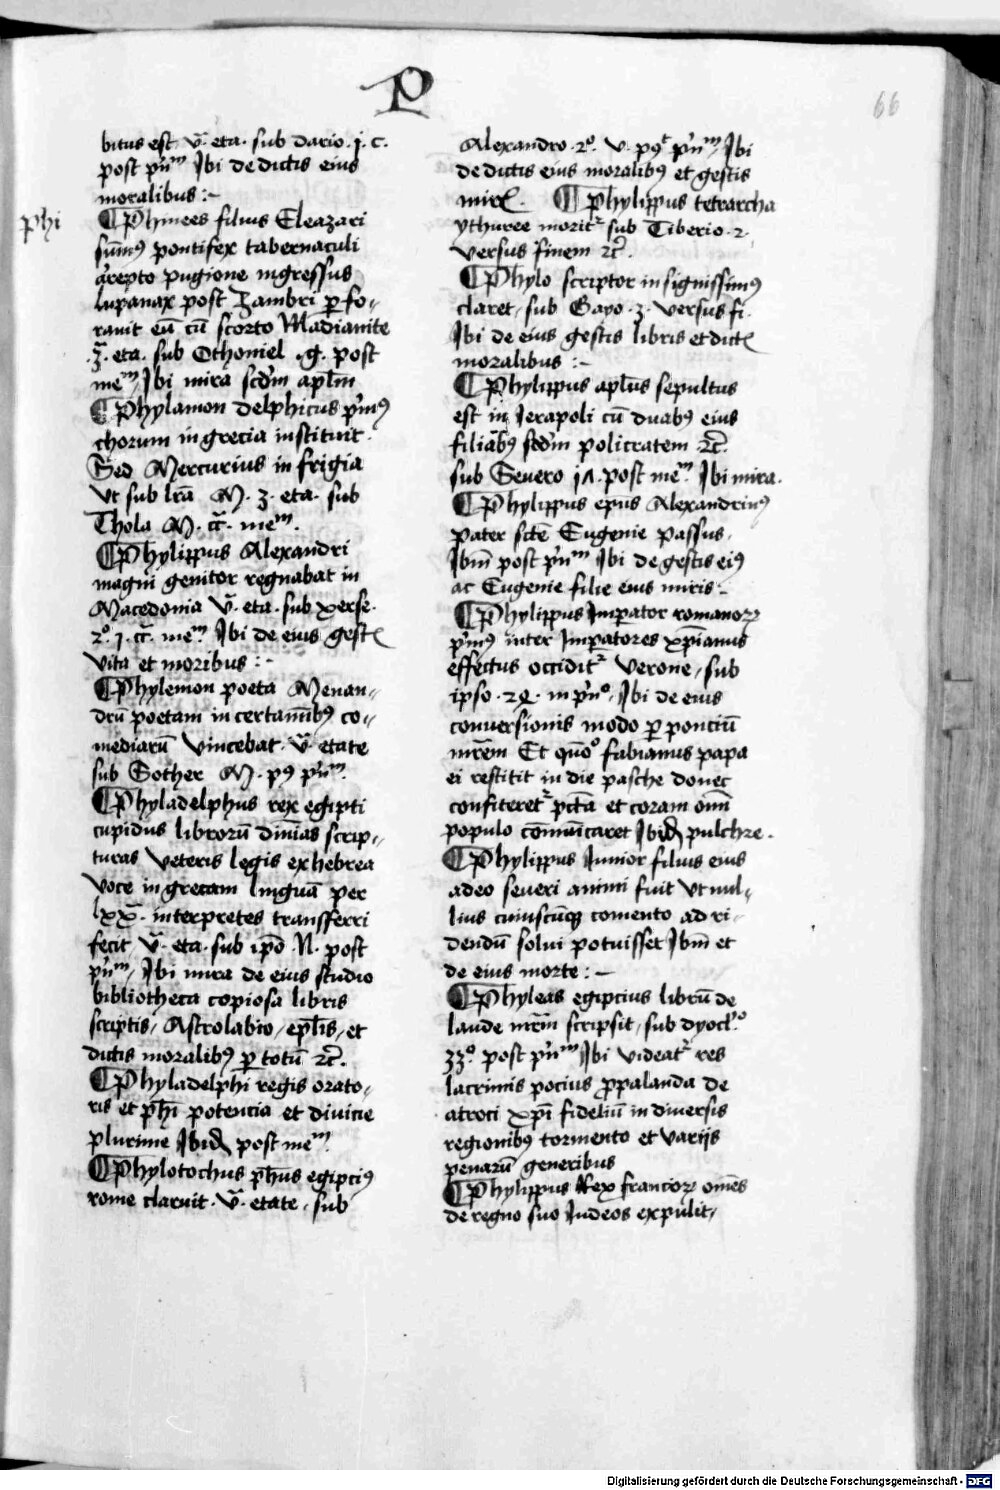 P
66
bitus est. v̄. eta. sub dario. j. c.
post p̄nᵐ Ibi de dictis eius
moralibus :-
phi
¶ Phinees filius Eleazari
sūmꝰ pontifex tabernaculi
arepto pugione ingressus
lupanar post Zambri ꝑfo-
rauit eū cū scorto Madianite
.3̄. eta. sub Othoniel .g. post
meᵐ, Ibi mira scd'm apl'm
¶ Phylamon delphicus p'mꝰ
chorum in grecia instituit.
Sed Mercurius in frigia
vt sub lr̄a M. 3. eta. sub
Thola M. cc̄. meᵐ.
¶ Phylippus Alexandri
magni genitor regnabat in
Macedonia v̄. eta. sub xerse.
2°. j. cc̄. meᵐ. Ibi de eius gest
vita et moribus :-
¶ Phylemon poeta Menan-
drū poetam in certamībꝰ co-
mediarū vincebat. v̄. etate
sub Sother M. pꝰ p̄nᵐ.
¶ Phyladelphus rex egipti
cupidus librorū diuīas scrip-
turas veteris legis ex hebrea
voce in grecam linguā per
lxx̄. interpretes transferri
fecit v̄. eta. sub ip̄o .N. post
p̄nᵐ, Ibi mira de eius studio
bibliotheca copiosa libris
scriptis, Astrolabio, epl̄is, et
dictis moralibꝰ ꝑ totū ꝛc̄.
¶ Phyladelphi regis orato-
ris et ph̄i potencia et diuicie
plurime Ibid post meᵐ.
¶ Phylotochus ph̄us egipciꝰ
rome claruit. v̄. etate, sub
Alexandro .2°. v. pꝰ p̄nᵐ, Ibi
de dictis eius moralibꝰ et gestis
mir. ¶ Phylippus tetrarcha
ythuree morit sub Tiberio .2.
versus finem ꝛc̄.
¶ Phylo scriptor insignissimꝰ
claret, sub Gayo .3. versus fi.
Ibi de eius gestis libris et dict
moralibus :-
¶ Phylippus apl̄us sepultus
est in Ierapoli cū duabꝰ eius
filiabꝰ scd'm policratem ꝛc̄.
sub Seuero 17. post meᵐ. Ibi mira.
¶ Phylippus ep̄us Alexandrinꝰ
pater sc̄te Eugenie passus,
Ibm̄ post p̄nᵐ Ibi de gestis eiꝰ
ac Eugenie filie eius miris -
¶ Phylippus Imperator romanoꝝ
p'mꝰ inter Imꝑatores xp̄ianus
effectus occidit verone, sub
ipso .2. in p̄n°, Ibi de eius
conuersionis modo ꝑ ponciū
mr̄em Et quō° fabianus papa
ei restitit in die pasche donec
confiteret pctā et coram om̄i
populo cōmūicaret Ibid pulchre.
¶ Phylippus Iunior filius eius
adeo seueri animi fuit vt nul-
lius cuiuscūqꝫ comento ad ri-
dendū solui potuisset Ibm̄ et
de eius morte :-
¶ Phyleas egipcius librū de
laude mr̄m scripsit, sub dyocl'.°
33°. post p̄nᵐ Ibi videat res
lacrimis pocius ꝓpalanda de
atroci xp̄i fideliū in diuersis
regionibꝰ tormento et varijs
penarū generibus
¶ Phylippus Rex francoꝝ om̄es
de regno suo Iudeos expulit,
Digitalisierung gefördert durch die Deutsche Forschungsgemeinschaft - DFG